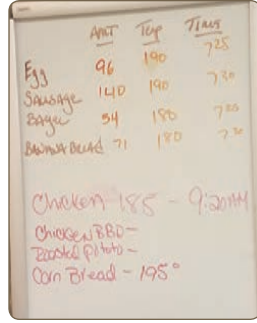 AMT Temp Time
Egg 96 190 725
Sausage 140 190 730
Bagel 54 180 720
Banana Bread 71 180 730
Chicken 185 - 9:20AM
Chicken BBQ -
Roasted potato -
Corn Bread - 195°